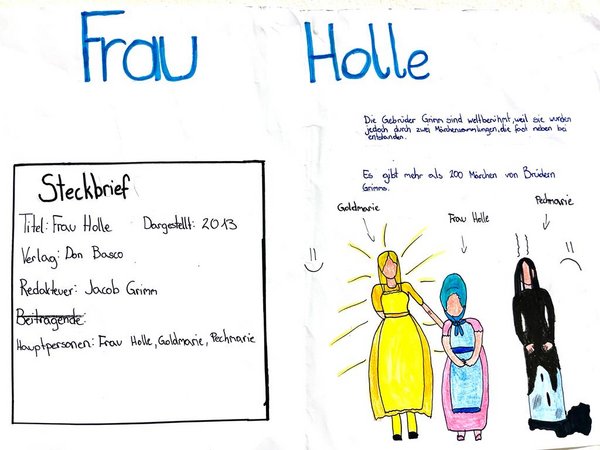 Frau Holle
Die Gebrüder Grimm sind weltberühmt, weil sie wurden
jedoch durch zwei Märchensammlungen, die fast neben bei
entstanden.
Es gibt mehr als 200 Märchen von Brüdern
Grimms.
Steckbrief
Titel: Frau Holle Dargestellt: 2013
Verlag: Don Bosco
Redakteuer: Jacob Grimm
Beitragende:
Hauptpersonen: Frau Holle, Goldmarie, Pechmarie
Goldmarie
Frau Holle
Pechmarie